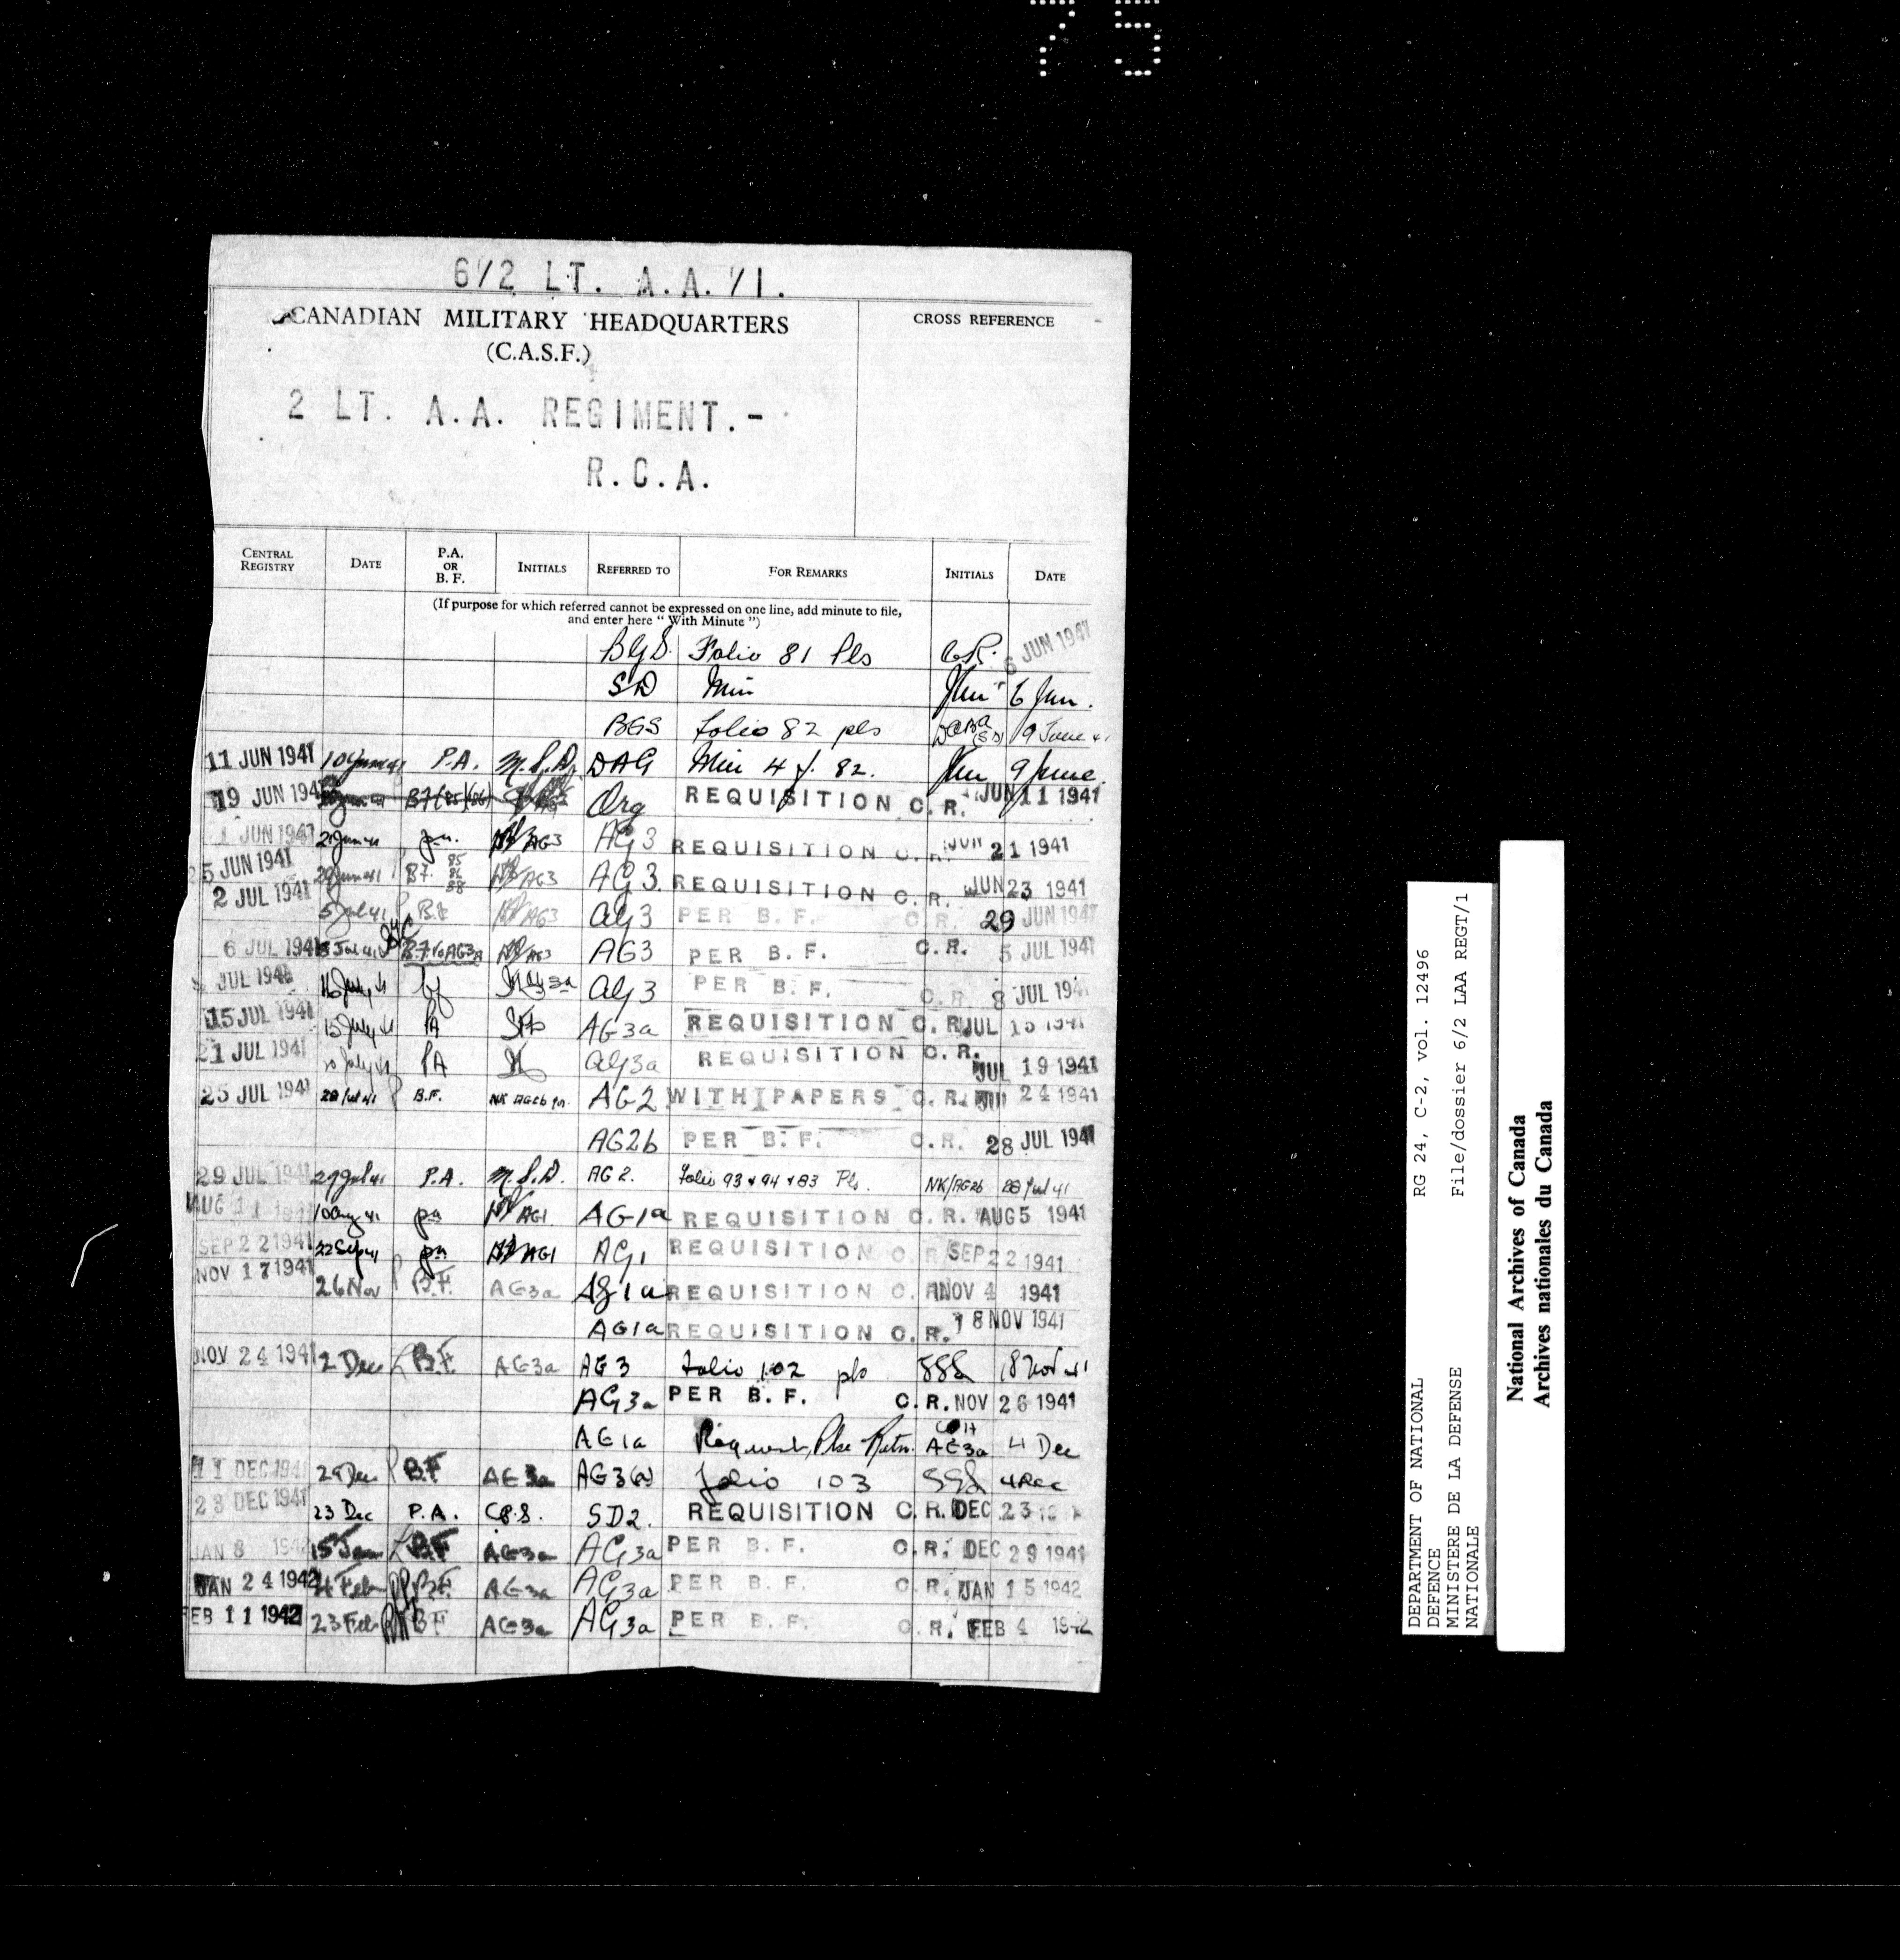 75
6/2 LT. A.A. /1.
CANADIAN MILITARY HEADQUARTERS
(C.A.S.F.)
CROSS REFERENCE
2 LT. A.A. REGIMENT.-
R.C.A.
CENTRAL REGISTRY DATE P.A. OR B. F. INITIALS REFERRED TO FOR REMARKS INITIALS DATE
(If purpose for which referred cannot be expressed on one line, add minute to file,
and enter here " With Minute ")
BGS. Folio 81 Pls C.R. 6 JUN 1941
SD Min 6 Jun.
BGS folio 82 pls 9 June 41
11 JUN 1941 10 June 41 P.A. M.S.D. DAG Min 4 f. 82. 9 June.
19 JUN 194 Org REQUISITION C.R. JUN 11 1941
1 JUN 1941 21 Jun 41 pa. AG3 AG3 REQUISITION C.R. JUN 21 1941
25 JUN 1941 29 June 41 B7. 85 86 88 AG3 AG3. REQUISITION C.R. JUN 23 1941
2 JUL 1941 5 Jul 41 B.F. AG3 AG3 PER B.F. C.R. 29 JUN 1941
6 JUL 1941 8 Jul 41 B.F. to AG3A AG3 AG3 PER B.F. C.R. 5 JUL 1941
JUL 1941 July 41 bf AG3 PER B.F. C.R. 8 JUL 194
15 JUL 1941 15 July 41 PA AG3a REQUISITION C.R. JUL 15 1941
21 JUL 1941 20 July 41 PA AG3a REQUISITION C.R. JUL 19 1941
25 JUL 1941 28 Jul 41 B.F. NK AG2b AG2 WITH PAPERS C.R. 24 1941
AG2b PER B.F. C.R. 28 JUL 1941
29 JUL 1941 29 Jul 41 P.A. M.S.D. AG2. Folio 93 + 94 + 83 Pls. NK/AG2b 28 Jul 41
AUG 11 1941 10 Aug 41 pa AG1 AG1a REQUISITION C.R. AUG 5 1941
SEP 22 1941 22 Sep 41 pa AG1 AG1 REQUISITION C.R. SEP 22 1941
NOV 17 1941 26 Nov B.F. AG3a AG1a REQUISITION C.R. NOV 4 1941
AG1a REQUISITION C.R. 18 NOV 1941
NOV 24 1941 2 Dec B.F. AG3a AG3 folio 102 pls SSS 18 Nov 41
AG3a PER B.F. C.R. NOV 26 1941
AG1a AG3a 4 Dec
11 DEC 1941 29 Dec BF AG3a AG3(a) folio 103 SSS 4 Dec
23 DEC 1941 23 Dec P.A. C.P.S. SD2. REQUISITION C.R. DEC 23
JAN 8 1942 15 Jan BF AG3a AG3a PER B.F. C.R. DEC 29 1941
JAN 24 1942 4 Feb B.F. AG3a AG3a PER B.F. C.R. JAN 15 1942
FEB 11 1942 23 Feb BF AG3a AG3a PER B.F. C.R. FEB 4 1942
DEPARTMENT OF NATIONAL RG 24, C-2, vol. 12496
DEFENCE
MINISTERE DE LA DEFENSE File/dossier 6/2 LAA REGT/1
NATIONALE
National Archives of Canada
Archives nationales du Canada